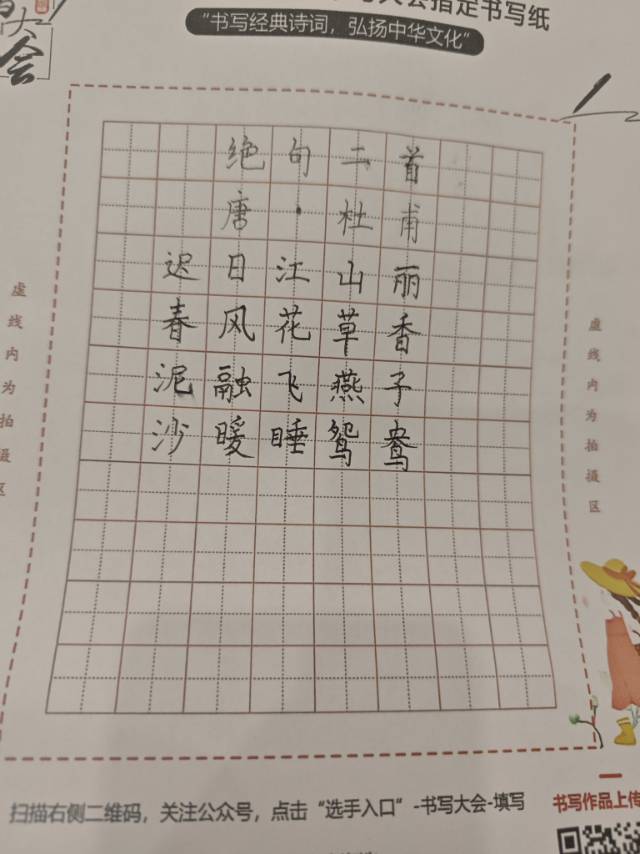 大会指定书写纸
“书写经典诗词，弘扬中华文化”
大会
绝句二首
唐·杜甫
迟日江山丽
春风花草香
泥融飞燕子
沙暖睡鸳鸯
虚线内为拍摄区
虚线内为拍摄区
扫描右侧二维码，关注公众号，点击“选手入口”-书写大会-填写
书写作品上传